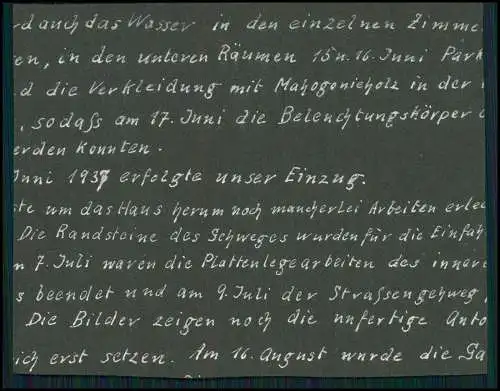 rd auch das Wasser in den einzelnen Zimme
en, in den unteren Räumen 15 u. 16. Juni Park
d die Verkleidung mit Mahogonieholz in der
, sodaß am 17. Juni die Beleuchtungskörper
erden konnten.
Juni 1937 erfolgte unser Einzug.
ste um das Haus herum noch mancherlei Arbeiten erled
Die Randsteine des Gehweges wurden für die Einfah
n 7. Juli waren die Plattenlegearbeiten des innere
s beendet und am 9. Juli der Strassengehweg,
Die Bilder zeigen noch die unfertige Auto
ich erst setzen. Am 16. August wurde die Ga